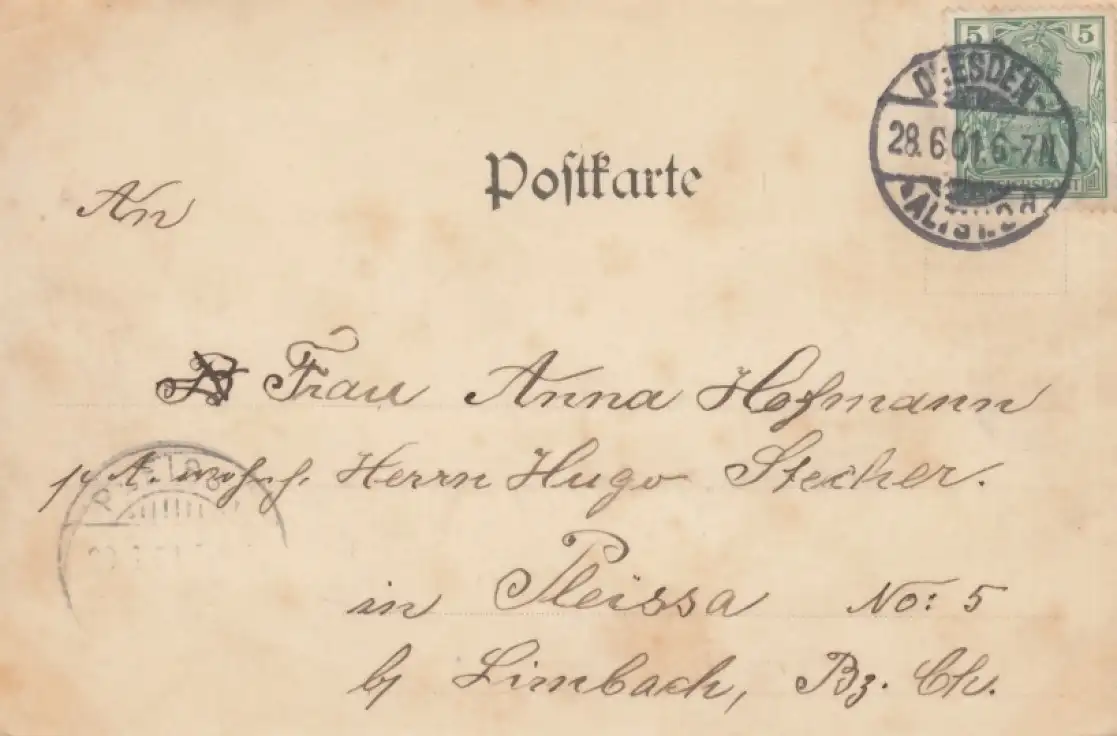 5 5
REICHSPOST
DRESDEN
28.6.01.6-7N.
ALTST.
Postkarte
An
Frau Anna Hofmann
p. A. Herrn Hugo Stecher.
in Pleissa No: 5
b/ Limbach, Bz. Ch.